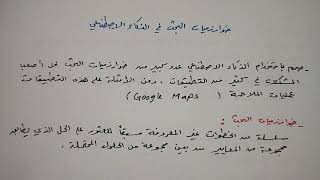 خوارزميات البحث في الذكاء الاصطناعي
- صمم باستخدام الذكاء الاصطناعي عدد كبير من خوارزميات البحث لحل أصعب
المشكلات في كثير من التطبيقات. ومن الأمثلة على هذه التطبيقات
عمليات الملاحة ( Google Maps )
- خوارزميات البحث :
سلسلة من الخطوات غير المعروفة مسبقاً للعثور على الحل الذي يطابق
مجموعة من المعايير من بين مجموعة من الحلول المحتملة .